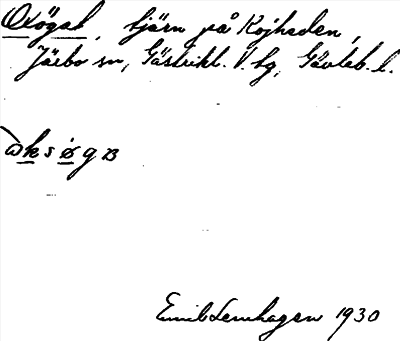 Oxögat, tjärn på Kojheden,
Järbo sn, Gästrikl. V. hg, Gävleb. l.
Emil Lenhagen 1930